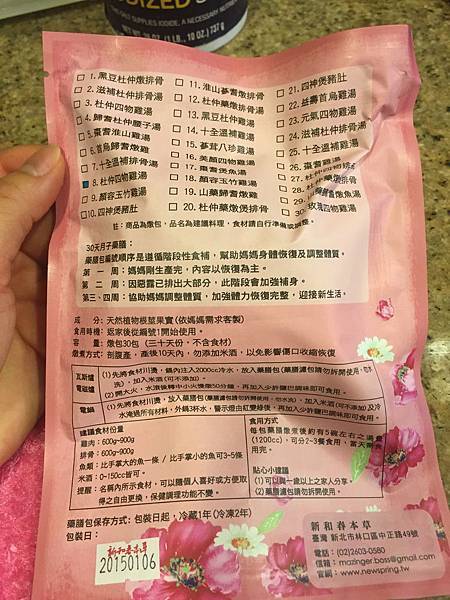 DIZED S
THIS SALT SUPPLIES IODIDE, A NECESSARY NUTRIENT
NET WT. 26 OZ. (1 LB., 10 OZ.) 737 g
1. 黑豆杜仲燉排骨
2. 滋補杜仲排骨湯
3. 杜仲四物雞湯
4. 歸耆杜仲腰子湯
5. 棗耆淮山雞湯
6. 首烏歸耆燉雞
7. 十全溫補排骨湯
8. 杜仲四物雞湯
9. 顏容玉竹雞湯
10. 四神煲豬肚
11. 淮山蔘耆燉排骨
12. 杜仲藥燉排骨
13. 黑豆杜仲雞湯
14. 十全溫補雞湯
15. 蔘茸八珍雞湯
16. 美顏四物雞湯
17. 棗耆煲魚湯
18. 顏容玉竹雞湯
19. 山藥歸耆燉雞
20. 杜仲藥燉煲排骨
21. 四神煲豬肚
22. 益壽首烏雞湯
23. 元氣四物雞湯
24. 滋補杜仲排骨湯
25. 十全溫補雞湯
26. 棗耆雞湯
27. 杜仲四物排骨
28. 杜仲藥燉排骨
29. 歸耆燉魚湯
30. 玫瑰四物雞湯
註：商品為燉包，品名為建議料理，食材請自行準備或調整。
30天月子藥膳：
藥膳包編號順序是遵循階段性食補，幫助媽媽身體恢復及調整體質。
第一週：媽媽剛生產完，內容以恢復為主。
第二週：因惡露已排出大部分，此階段會加強補身。
第三、四週：協助媽媽調整體質，加強體力恢復完整，迎接新生活。
成 分：天然植物根莖果實(依媽媽需求客製)
食用時機：返家後從編號1開始使用。
容 量：燉包30包（三十天份，不含食材）
燉煮方式：剖腹產，產後10天內，勿添加米酒，以免影響傷口收縮恢復
瓦斯爐
電磁爐
(1)先將食材川燙，鍋內注入2000cc冷水，放入藥膳包(藥膳濾包請勿拆開使用，勿水洗)，加入米酒(可不添加)。
(2)開大火，水滾後轉中小火慢燉50分鐘，再加入少許鹽巴調味即可食用。
電鍋
(1)先將食材川燙，放入藥膳包(藥膳濾包請勿拆開使用，勿水洗)，加入米酒(可不添加)及冷水淹過所有材料，外鍋3杯水，警示燈由紅變綠後，再加入少許鹽巴調味即可食用。
建議食材份量
雞肉：600g-900g
排骨：600g-900g
魚類：比手掌大的魚一條 / 比手掌小的魚可3-5條
米酒：0-150cc皆可。
提醒：名稱內所示食材，可以隨個人喜好或方便取得之自由更換，保健調理功能不變。
食用方式
每包藥膳燉煮後約有5碗左右之湯食(1200cc)，可分2~3餐食用，當天需食用完。
貼心小建議
(1)可以與一歲以上之家人分享。
(2)藥膳濾包請勿拆開使用。
藥膳包保存方式：包裝日起，冷藏1年 (冷凍2年)
包裝日：
新和春本草
20150106
新和春本草
臺灣 新北市林口區中正路49號
電話：(02)2603-0580
信箱：mazinger.boss@gmail.com
官網：www.newspring.tw